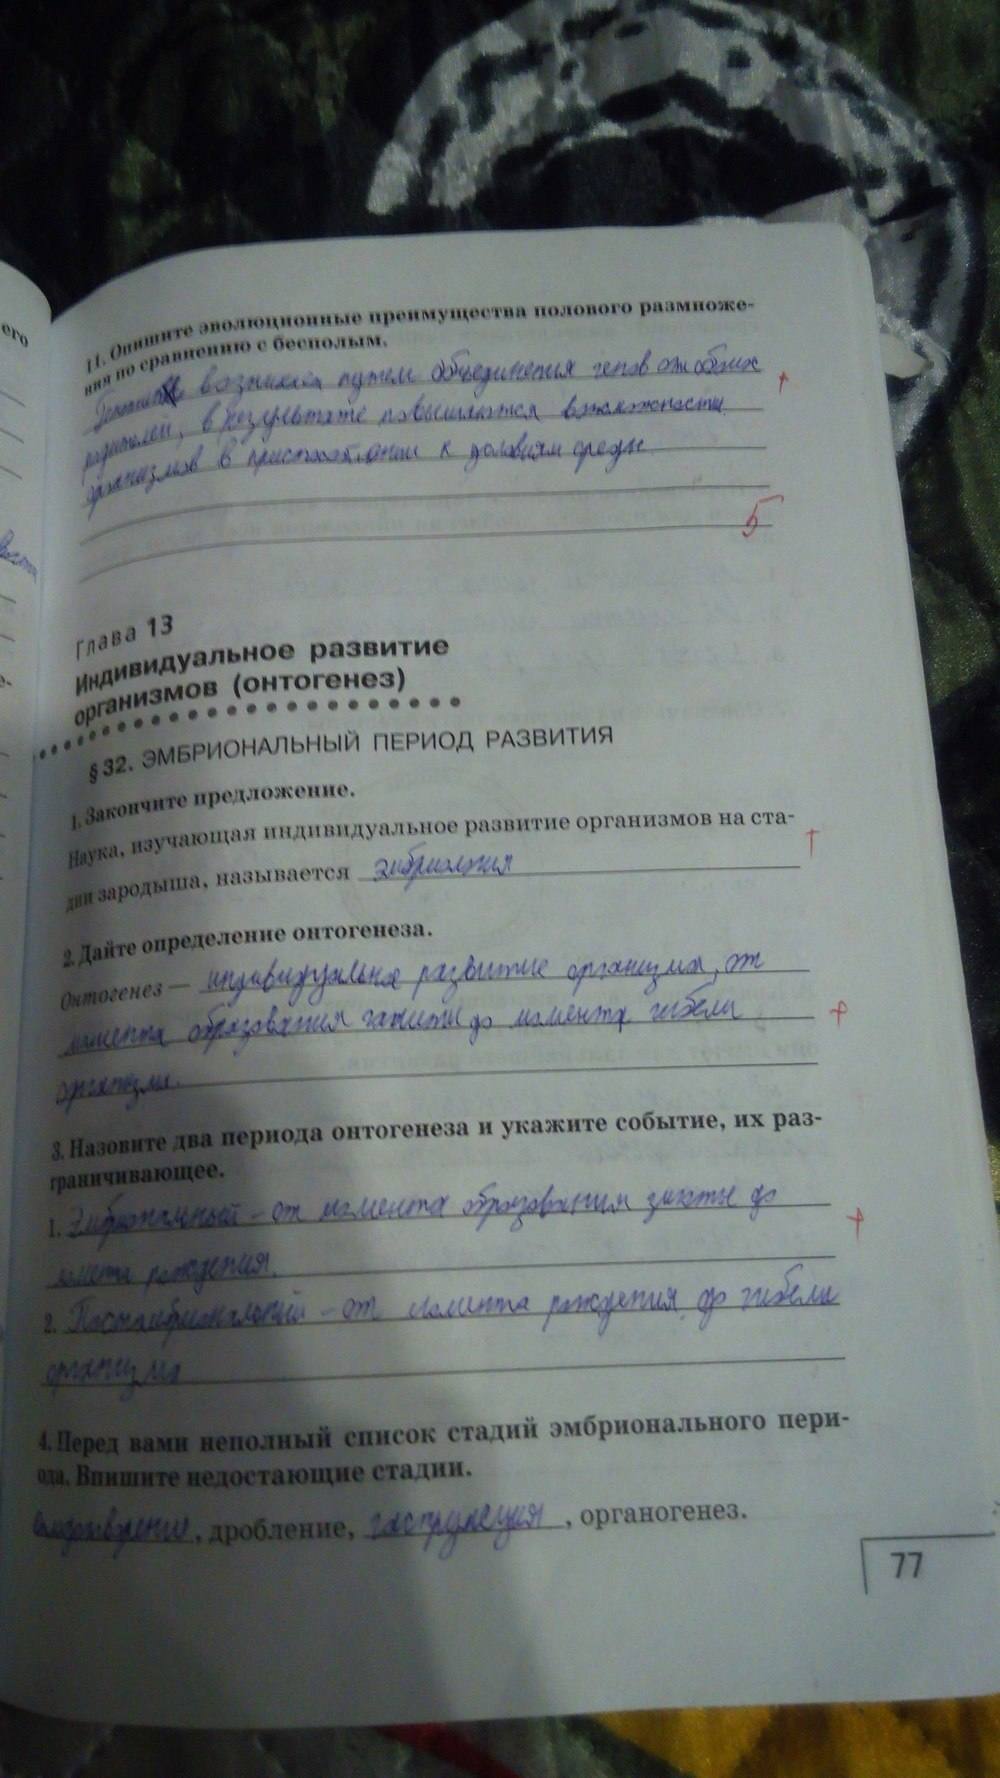 его
11. Опишите эволюционные преимущества полового размноже-
ния по сравнению с бесполым.
возникает путем объединения генов от обоих
родителей, в результате повышаются возможности
организмов в приспособлении к условиям среды
5
Глава 13
Индивидуальное развитие
организмов (онтогенез)
§ 32. ЭМБРИОНАЛЬНЫЙ ПЕРИОД РАЗВИТИЯ
1. Закончите предложение.
Наука, изучающая индивидуальное развитие организмов на ста-
дии зародыша, называется эмбриология
2. Дайте определение онтогенеза.
Онтогенез — индивидуальное развитие организма, от
момента образования зиготы до момента гибели
организма.
3. Назовите два периода онтогенеза и укажите событие, их раз-
граничивающее.
1. Эмбриональный – от момента образования зиготы до
момента рождения.
2. Постэмбриональный – от момента рождения до гибели
организма
4. Перед вами неполный список стадий эмбрионального пери-
ода. Впишите недостающие стадии.
оплодотворение, дробление, гаструляция, органогенез.
77